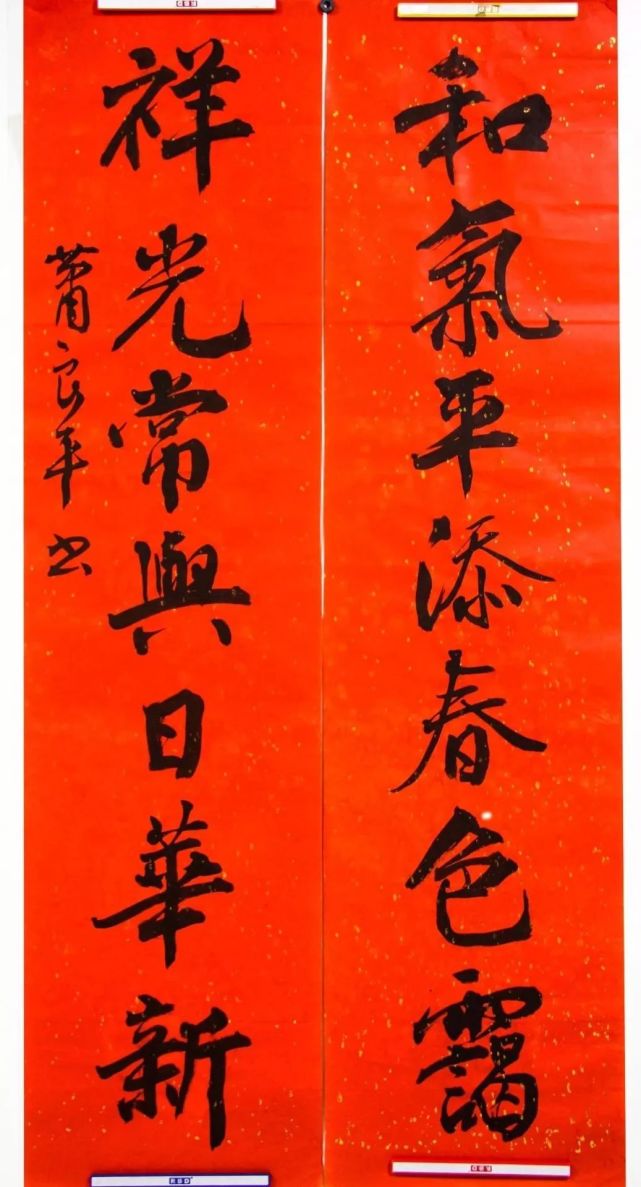 和氣平添春色靄
祥光常與日華新
蕭良平书